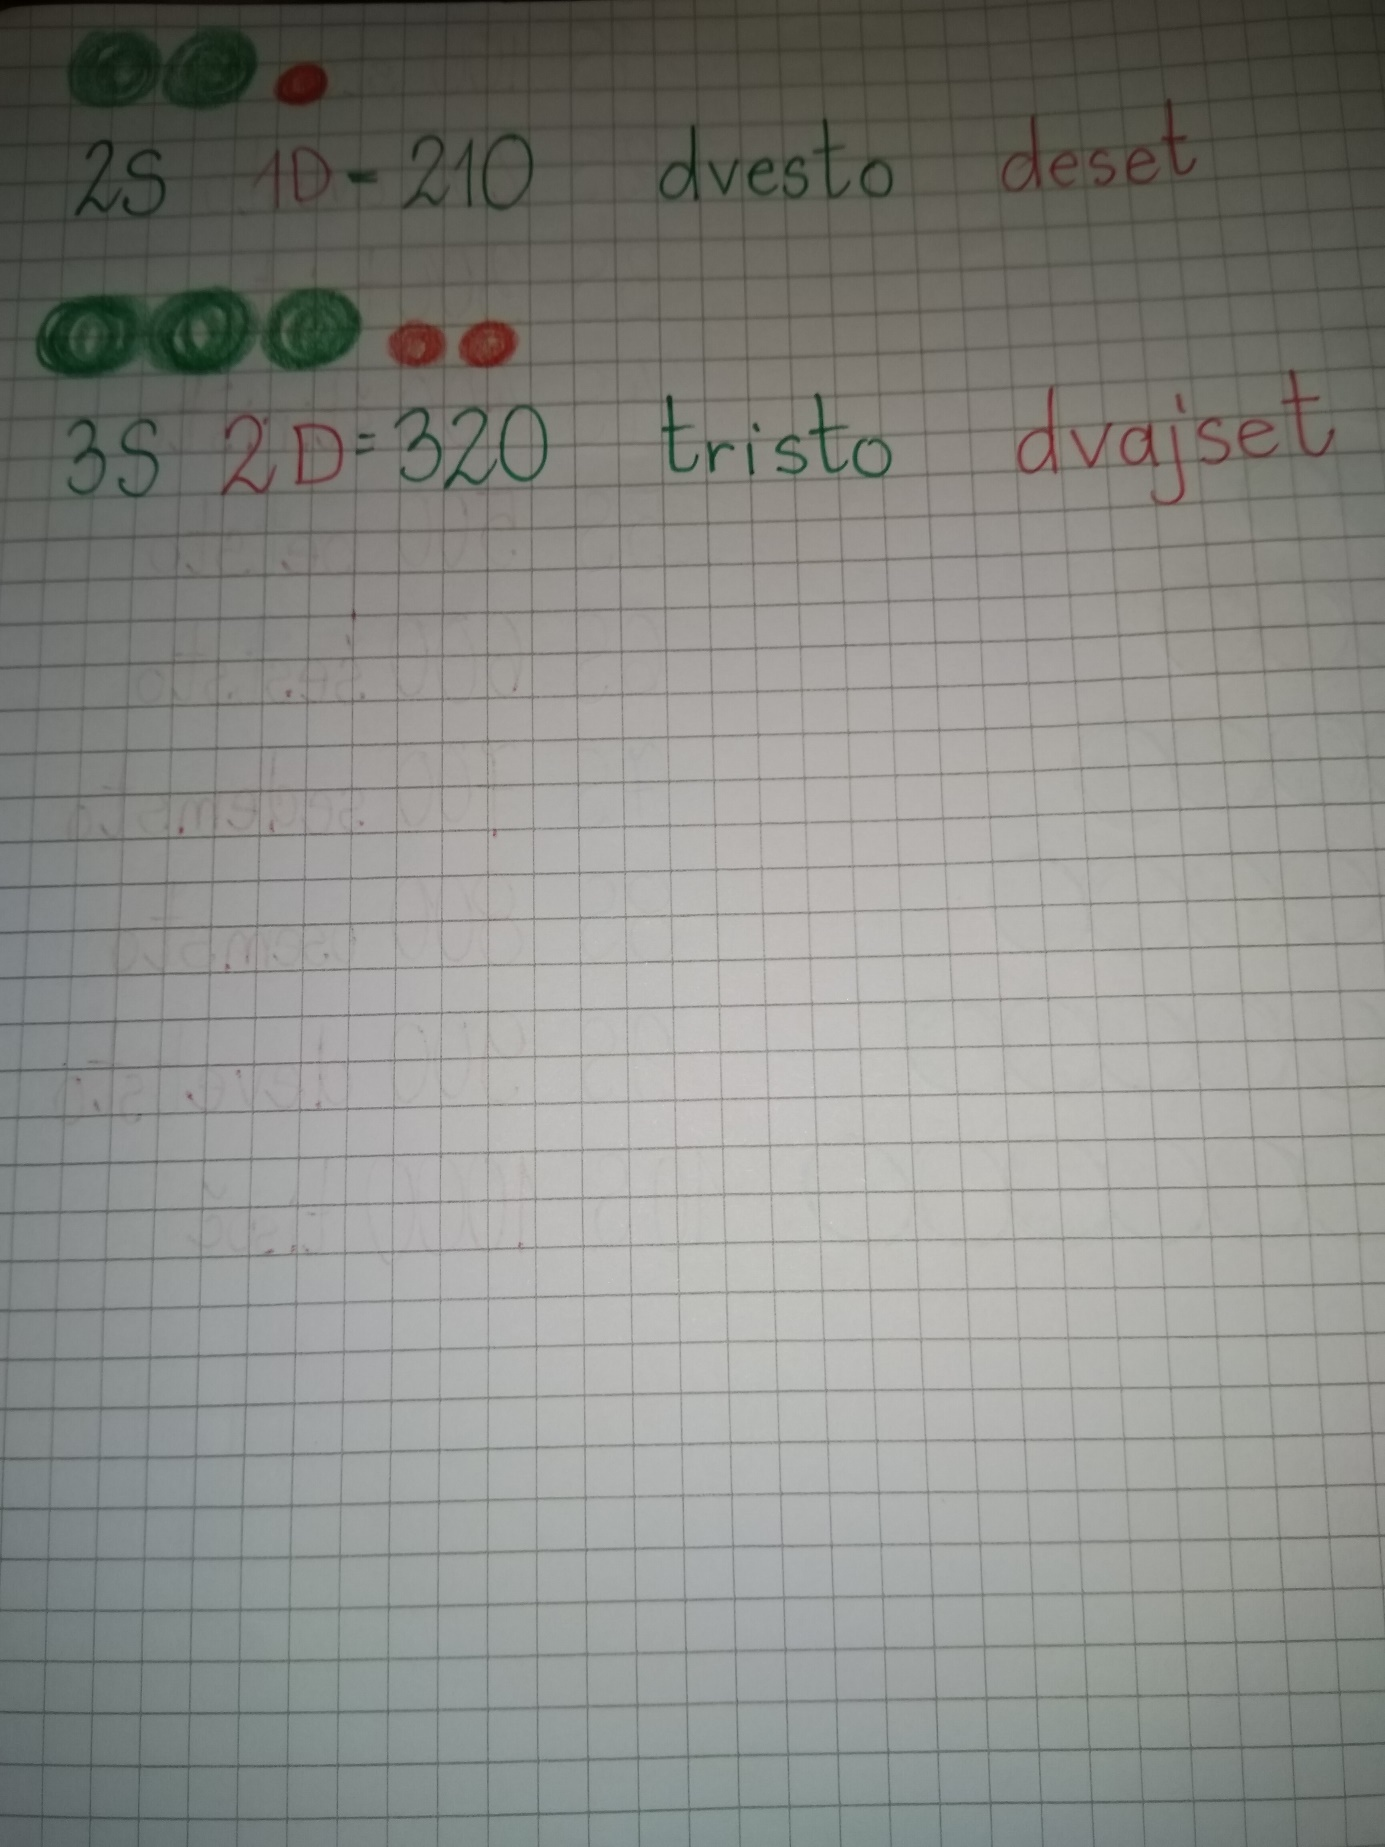 2S 1D = 210 dvesto deset
3S 2D = 320 tristo dvajset